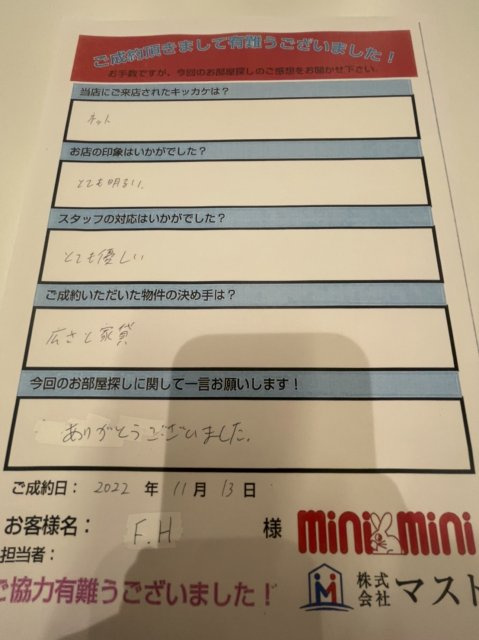 ご成約頂きまして有難うございました！
お手数ですが、今回のお部屋探しのご感想をお聞かせ下さい。
当店にご来店されたキッカケは？
ネット
お店の印象はいかがでした？
とても明るい。
スタッフの対応はいかがでした？
とても優しい
ご成約いただいた物件の決め手は？
広さと家賃
今回のお部屋探しに関して一言お願いします！
ありがとうございました。
ご成約日： 2022 年 11月 13 日
お客様名： F.H 様
mini mini
担当者：
ご協力有難うございました！
株式会社 マスト